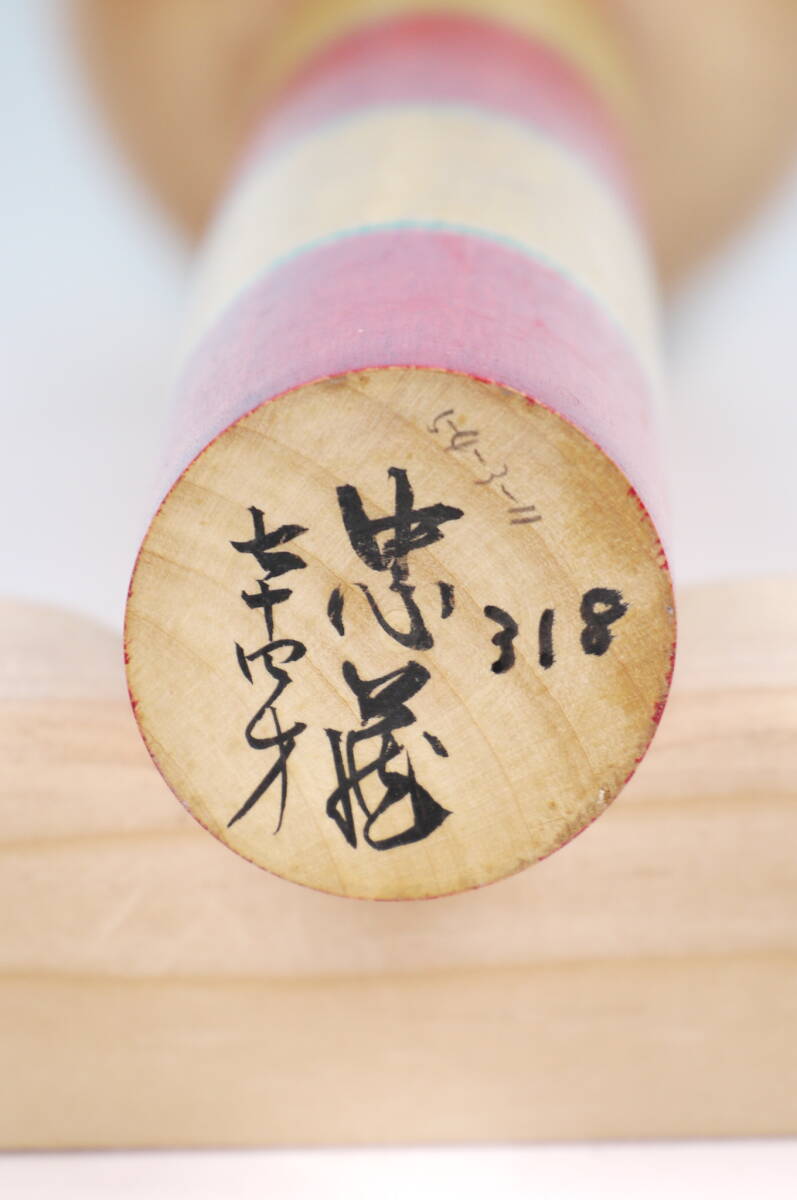 54-3-11
318
忠蔵
七十四才